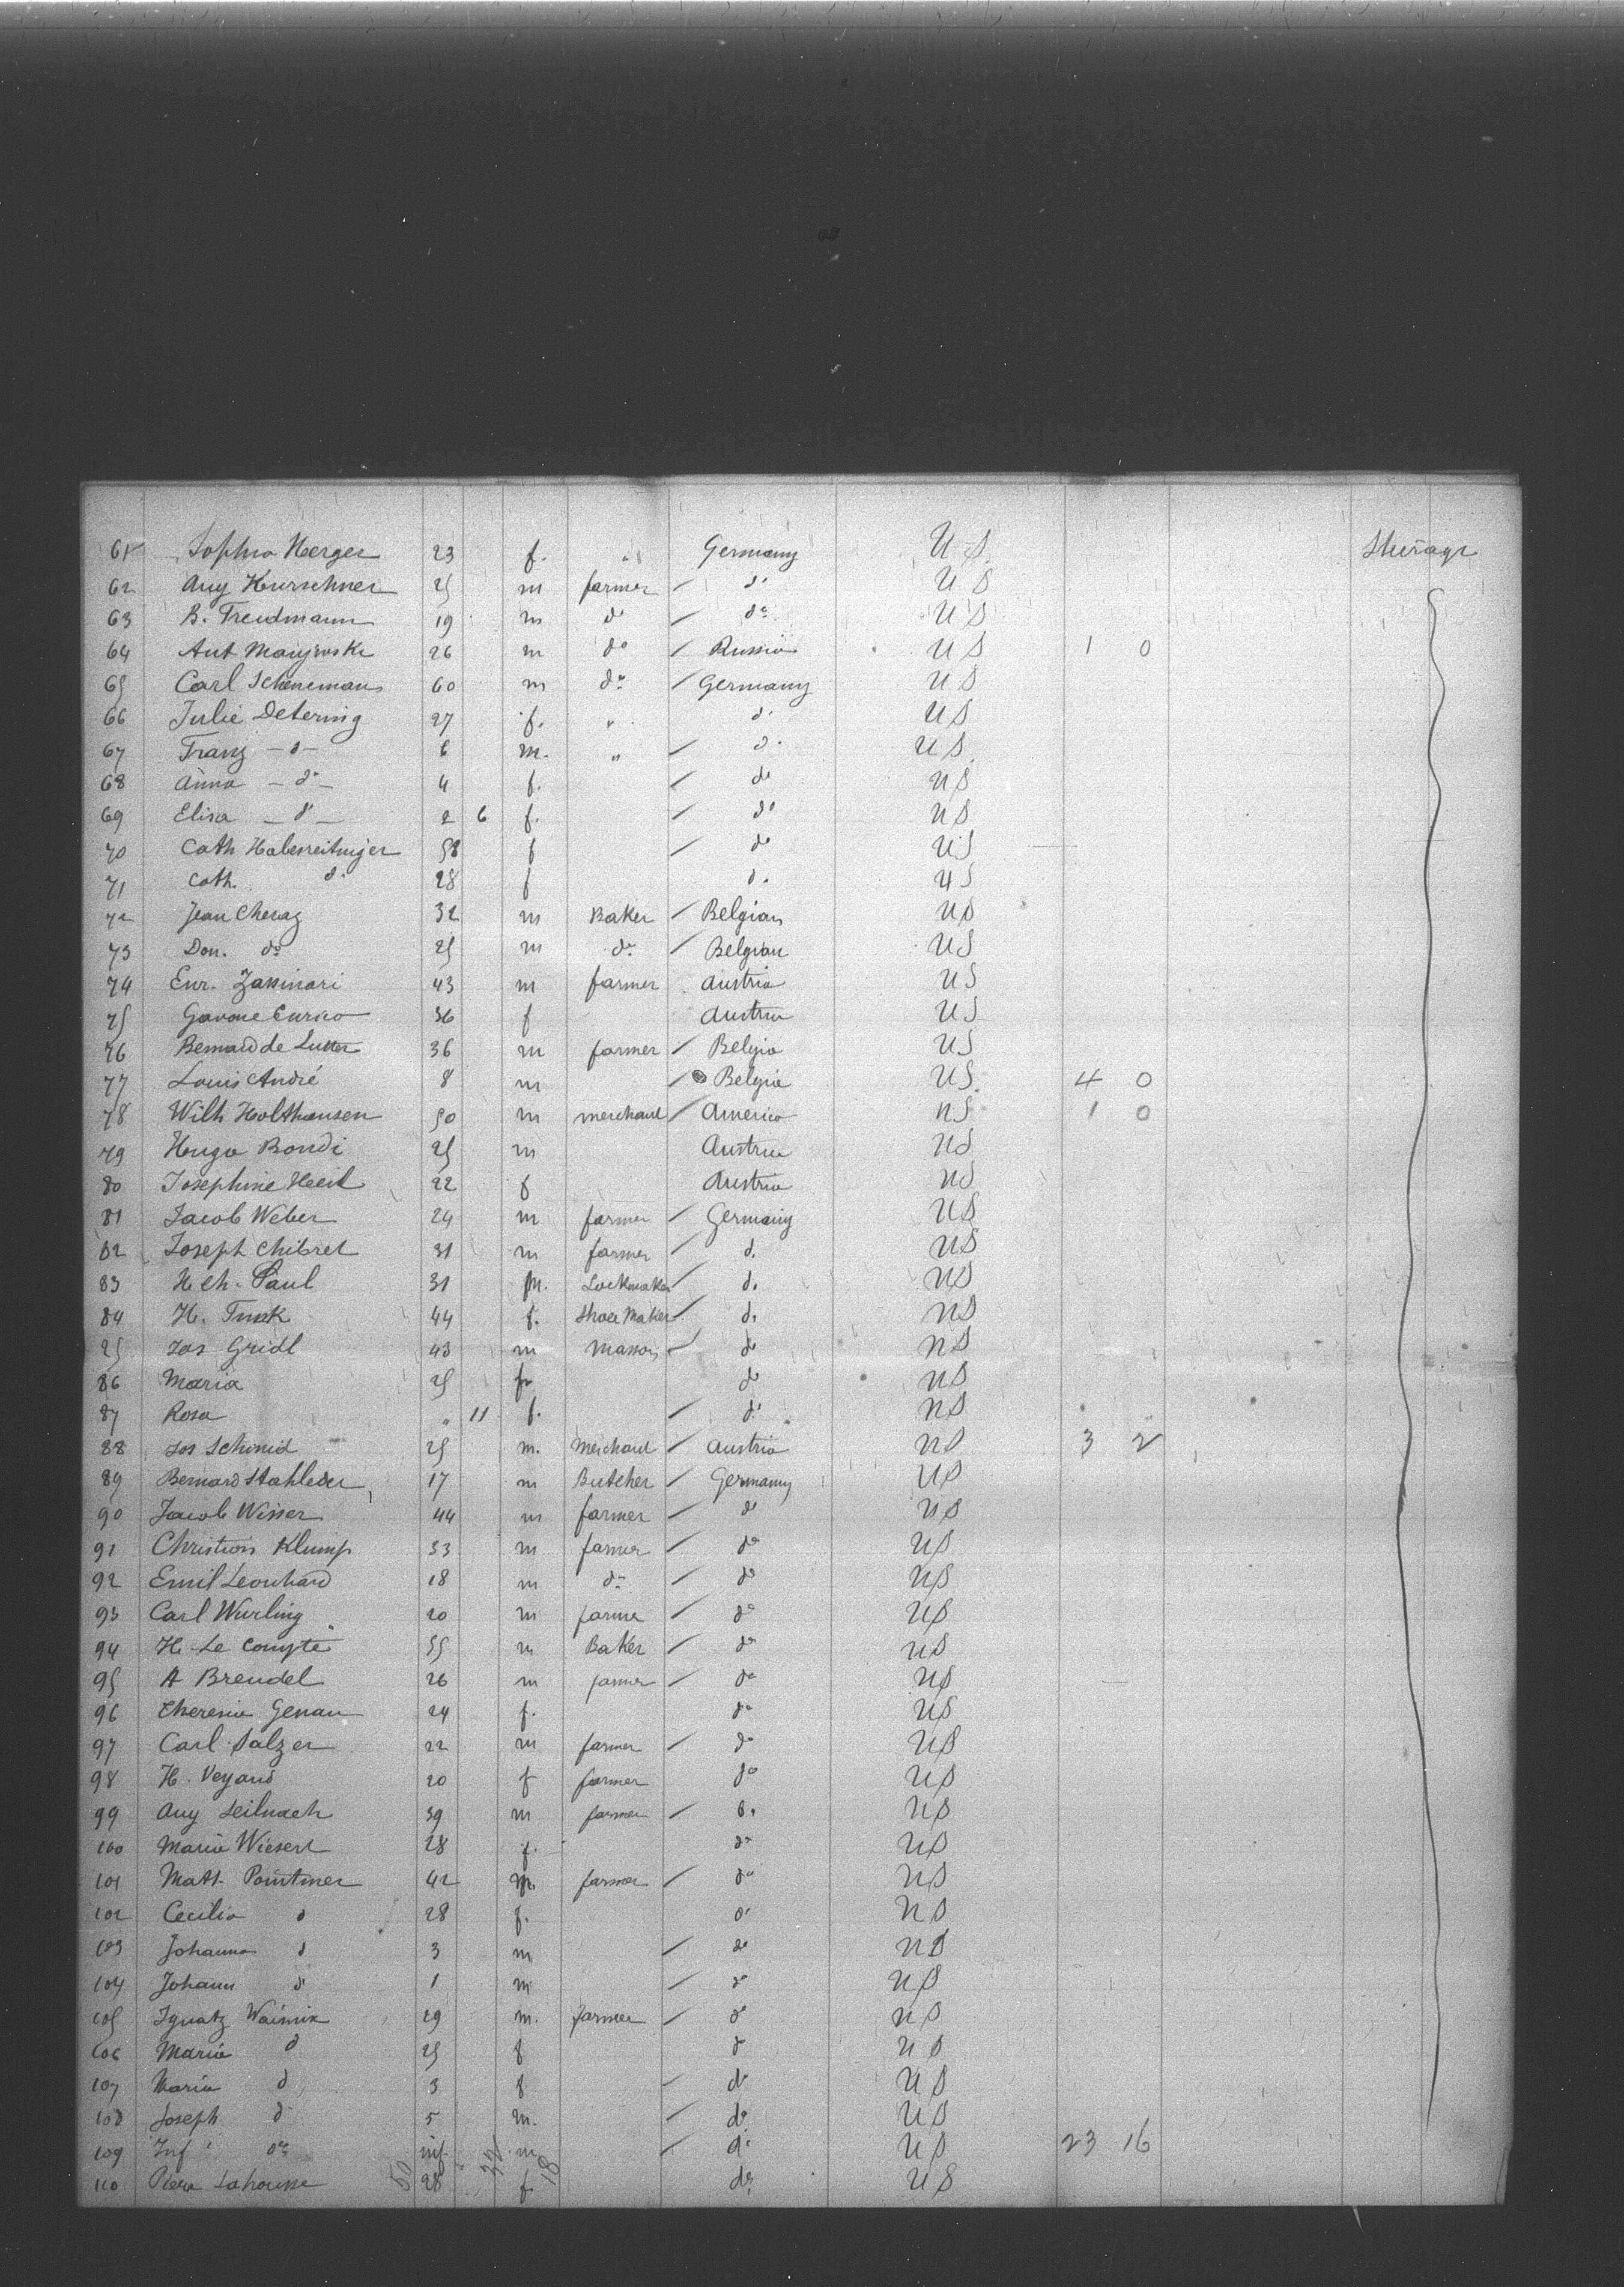 61 Sophia Herger 23 f. " Germany U S. Steerage
62 Aug Kurschner 25 m farmer / do U S
63 B. Freudmann 19 m do / do U S
64 Ant 26 m do / Russia U S 1 0
65 Carl Scheneman 60 m do / Germany U S
66 Julie Detering 27 f. " do U S
67 Franz - d - 6 m. " / do U S
68 Anna - do - 4 f. / do U S
69 Elisa - do - 2 6 f. / do U S
70 Cath 58 f / do U S
71 Cath. do 28 f do U S
72 Jean Cheraz 32 m Baker / Belgian U S
73 Don. do 25 m do / Belgian U S
74 Enr. Zassinari 43 m farmer Austria U S
75 Enrico 36 f Austria U S
76 Bernard de 36 m farmer / Belgia U S
77 Louis André 8 m / Belgia U S. 4 0
78 Wilh Holthausen 50 m merchant / America U S 1 0
79 Hugo Bondi 25 m Austria U S
80 Josephine 22 f Austria U S
81 Jacob Weber 24 m farmer / Germany U S
82 Joseph Chibret 31 m farmer / d. U S
83 H Ch. Paul 31 m. Lockmaker / d. U S
84 H. 44 f. Shoe Maker / d. U S
85 Jos Gridl 43 m Mason / do U S
86 Maria 25 f do U S
87 Rosa " 11 f. / do U S
88 Jos Schmid 25 m. Merchant / Austria U S 3 2
89 Bernard Stahleder 17 m Butcher / Germany U S
90 Jacob Wisser 44 m farmer / do U S
91 Christian Klump 33 m farmer / do U S
92 Emil Leonhard 18 m do / do U S
93 Carl Wurling 20 m farmer / do U S
94 H. Le Compte 55 m Baker / do U S
95 A Brendel 26 m farmer / do U S
96 Theresia Genau 24 f. do U S
97 Carl Salzer 22 m farmer / do U S
98 H. Veyand 20 f farmer do U S
99 Aug Seilnach 39 m farmer / d. U S
100 Maria Wiesert 28 f. do U S
101 Matt. Pointner 42 m. farmer / do U S
102 Cecilia d 28 f. do U S
103 Johanna d 3 m / do U S
104 Johann d 1 m / do U S
105 Ignatz 29 m. farmer / do U S
106 Maria d 25 f d U S
107 Maria d 3 f / do U S
108 Joseph d 5 m. / do U S
109 Inf do inf m / do U S 23 16
110 28 f do U S
50 18